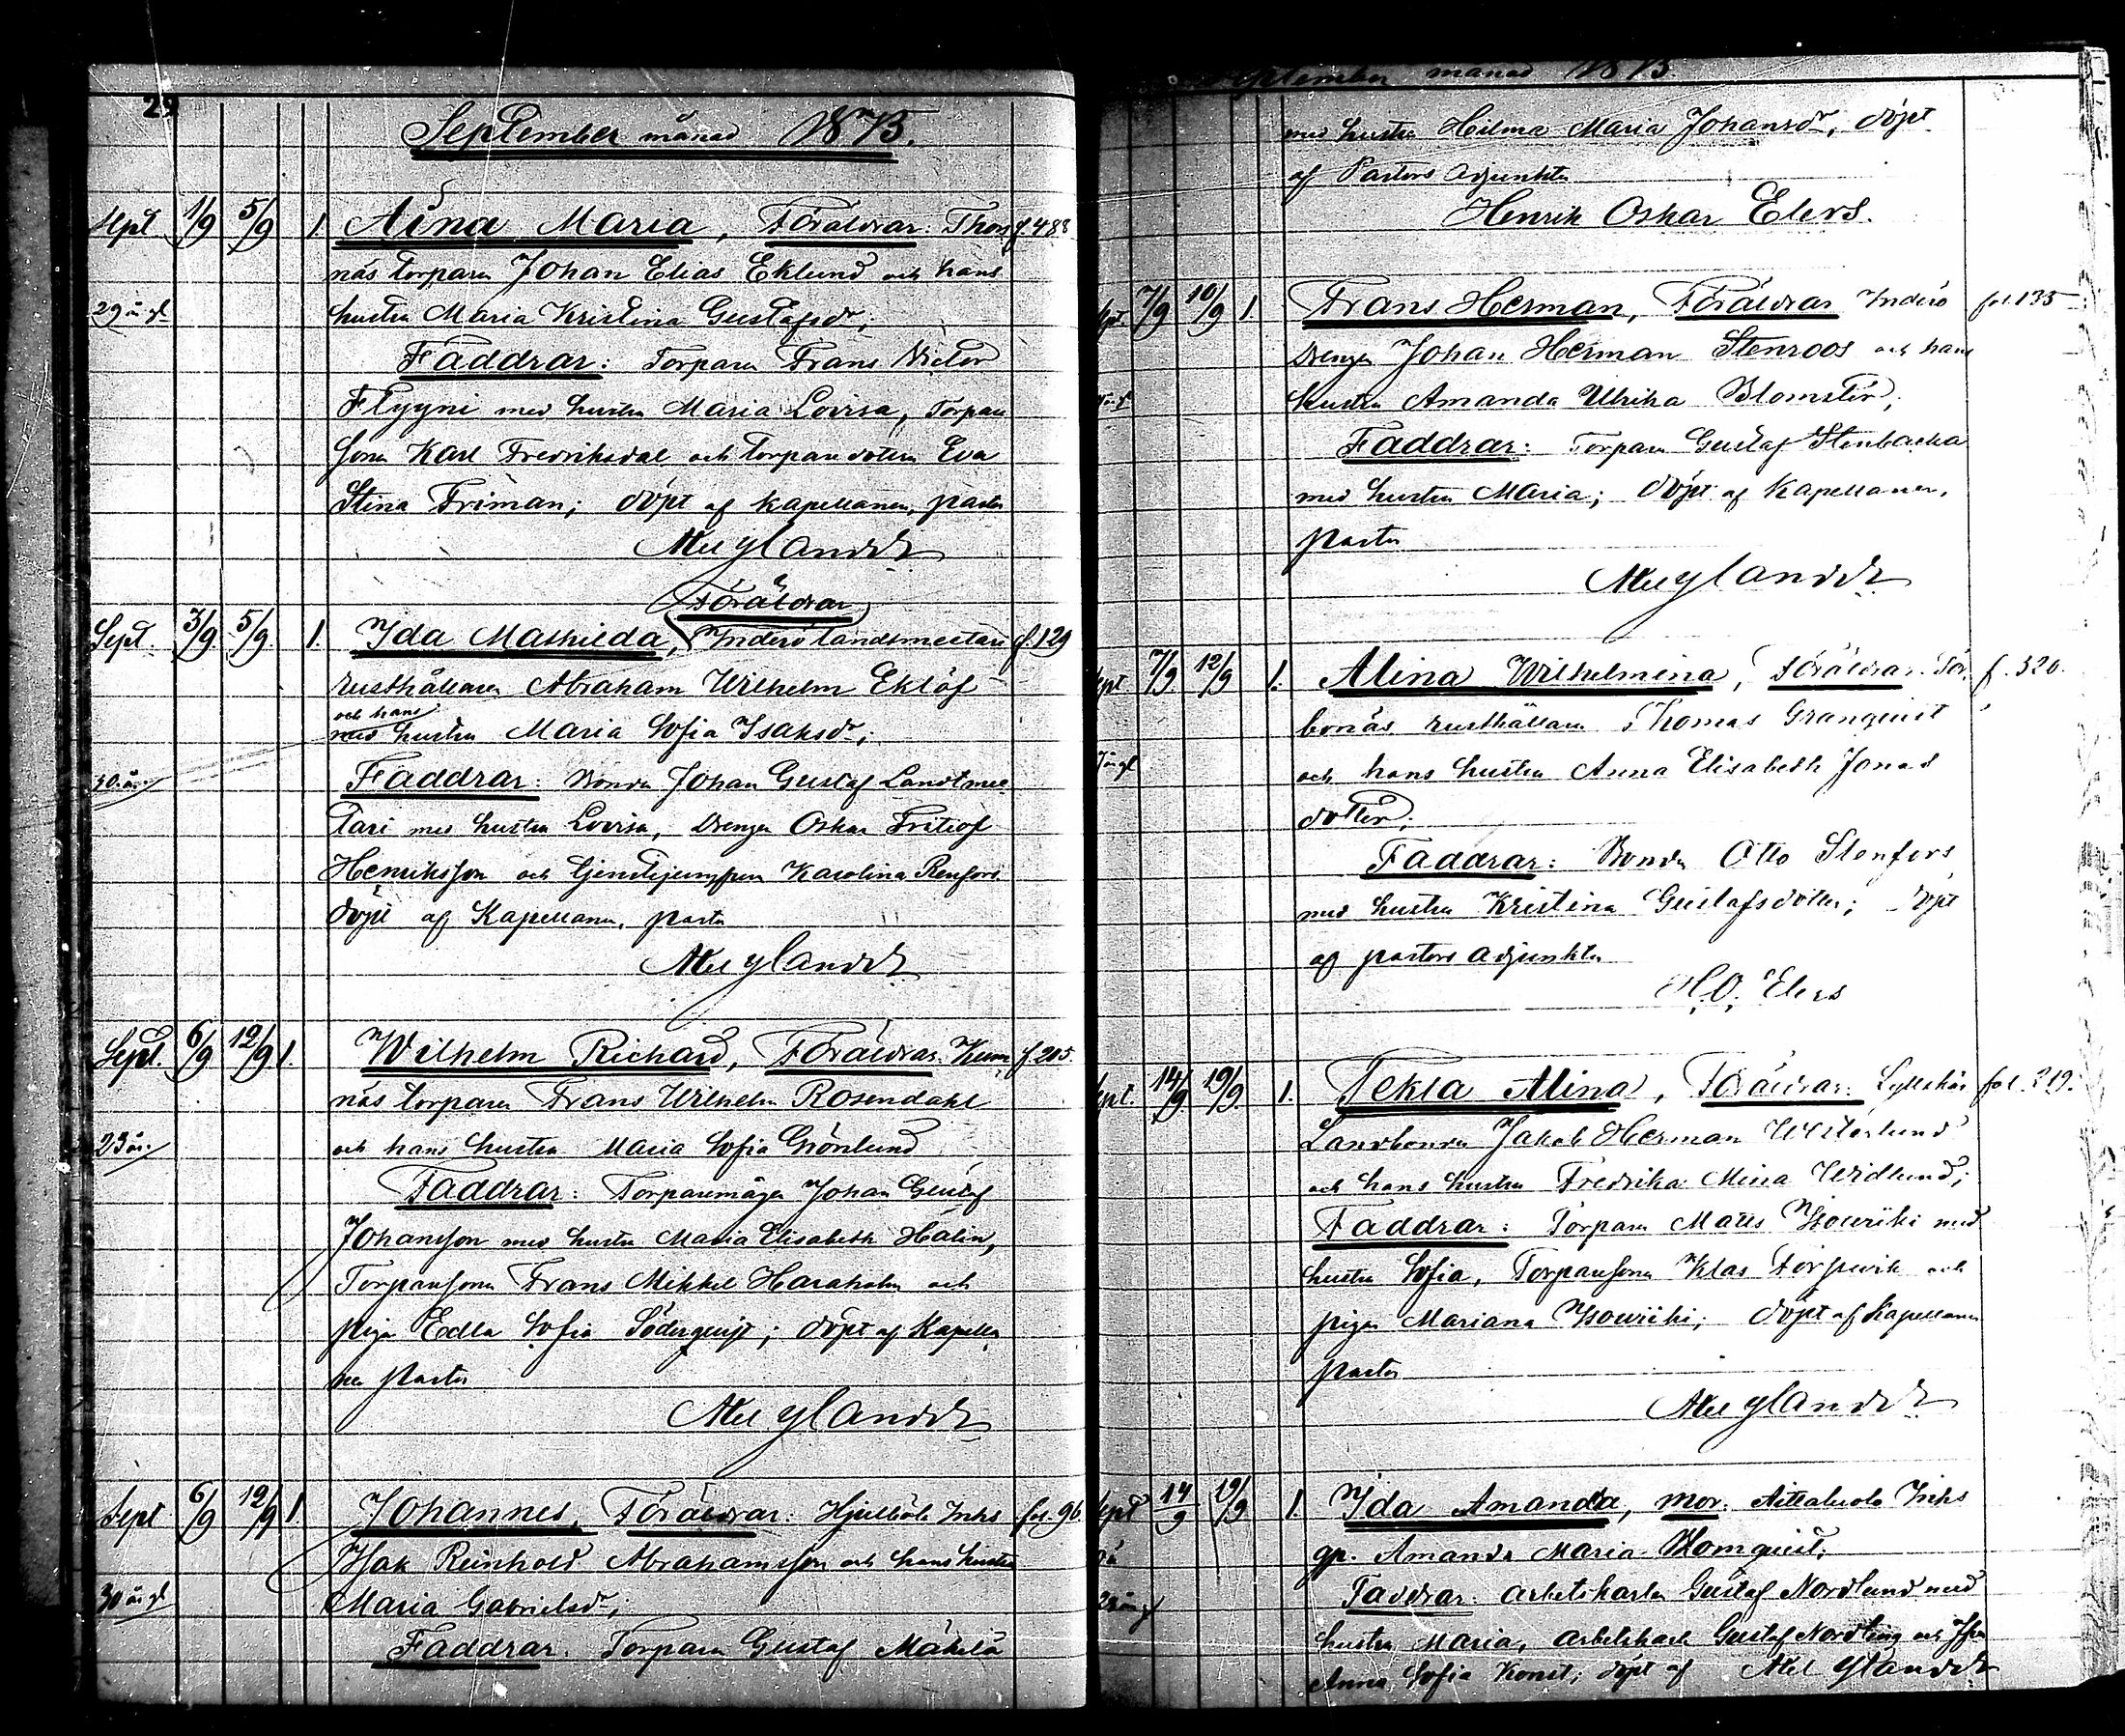 29
September månad 1873.
Sept 1/9 5/9 1. Aina Maria, Föräldrar: Thors f. 488
näs torparen Johan Elias Eklund och hans
29 år gl hustru Maria Kristina Gustafsdr;
Faddrar: Torparen Frans Victor
Flyyni med hustru Maria Lovisa, Torpare
sonen Karl Fredriksdal och torparedottren Eva
Stina Friman; döpt af kapellanen, pastor
Nylander
Föräldrar
Sept. 3/9 5/9. 1. Ida Mathilda, Inderö landtmeetari f. 129
rusthållaren Abraham Wilhelm Eklöf
och hans
med hustru Maria Sofia Isaksdr;
30 år. Faddrar: Bonden Johan Gustaf Landtmee
tari med hustru Lovisa, Drengen Oskar Fritiof
Henriksson och Karolina Renfors
döpt af Kapellanen, pastor
Nylander
Sept. 6/9 12/9 1. Wilhelm Richard, Föräldrar: f. 205.
näs torparen Frans Wilhelm Rosendahl
23 år och hans hustru Maria Sofia Grönlund
Faddrar: Torparemågen Johan Gustaf
Johansson med hustru Maria Elisabeth Halin,
Torparesonen Frans Mikkel Haraholm och
pigan Edla Sofia Söderqvist; döpt af Kapella
nen pastor
Nylander
Sept 6/9 12/9 1 Johannes, Föräldrar: Hjulböle Inhs fol. 96
Isak Reinhold Abrahamsson och hans hustru
30 år gl Maria Gabrielsdr;
Faddrar: Torparen Gustaf Mäkelä
September månad 1873.
med hustru Hilma Maria Johansdr, döpt
af Pastors Adjunkten
Henrik Oskar Elers.
Sept. 7/9 10/9 1. Frans Herman, Föräldrar Inderö fol. 135
Drengen Johan Herman Stenroos och hans
hustru Amanda Ulrika Blomster;
Faddrar: Torparen Gustaf Stenbacka
med hustru Maria; döpt af Kapellanen,
pastor
Nylander
Sept 7/9 12/9 1. Alina Wilhelmina, Föräldrar: Tor, f. 320.
bonäs rusthållaren Thomas Granquist
och hans hustru Anna Elisabeth Jonas
dotter;
Faddrar: Bonden Otto Stenfors
med hustru Kristina Gustafsdotter; döpt
af pastors adjunkten
H. O. Elers
Sept. 14/9 19/9. 1. Tekla Alina, Föräldrar: fol. 219.
Landbonden Jakob Herman Westerlund
och hans hustru Fredrika Mina Widlund;
Faddrar: Torparen Matts Isouriki med
hustru Sofia, Torparesonen Klas och
pigan Mariana Isouriki; döpt af Kapellanen
pastor
Nylander
Sept 14/9 19/9 1. Ida Amanda, mor: Inhs
gp. Amanda Maria Blomquist;
28 år gl Faddrar: arbetskarlen Gustaf Nordlund med
hustru Maria, arbetskarln Gustaf Nordling och Jfrun
Anna Sofia Konst; döpt af Nylander